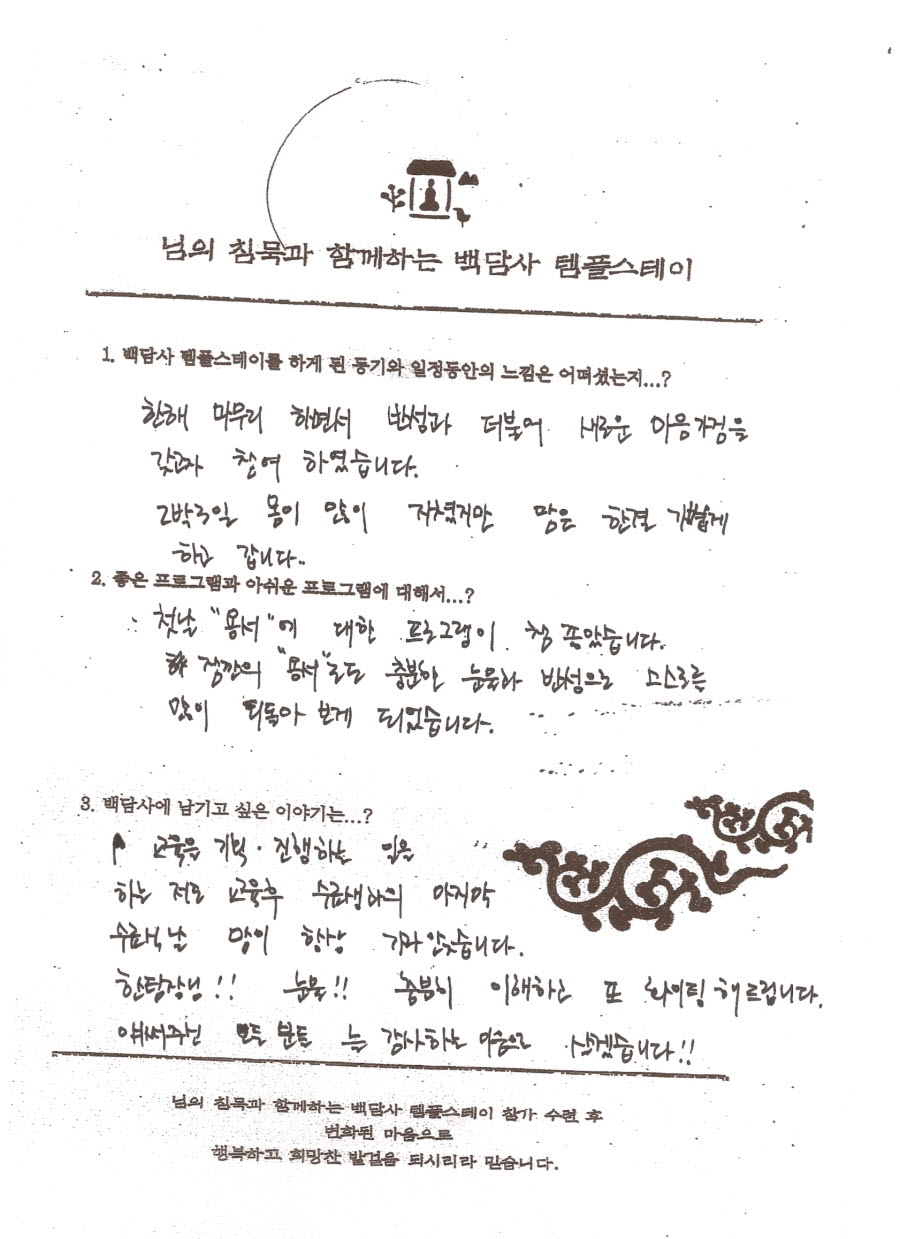 님의 침묵과 함께하는 백담사 템플스테이
1. 백담사 템플스테이를 하게 된 동기와 일정동안의 느낌은 어떠셨는지...?
한해 마무리 하면서 반성과 더불어 새로운 마음가짐을
갖고자 참여 하였습니다.
2박3일 몸이 많이 지쳤지만 맘은 한결 가볍게
하고 갑니다..
2. 좋은 프로그램과 아쉬운 프로그램에 대해서...?
첫날 "몽서"에 대한 프로그램이 참 좋았습니다.
잠깐의 "몽서"로도 충분한 눈물과 반성으로 스스로를
많이 되돌아 보게 되었습니다.
3. 백담사에 남기고 싶은 이야기는...?
교육을 기획·진행하는 일을
하는 저도 교육후 수료생과의 마지막
수료식날 맘이 항상
한탐장님!! 눈물!! 충분히 이해하고 또 화이팅 해드립니다.
애써주신 모든 분들 늘 감사하는 마음으로 살겠습니다!!
님의 침묵과 함께하는 백담사 템플스테이 참가 수련 후
변화된 마음으로
행복하고 희망찬 발걸음 되시리라 믿습니다.